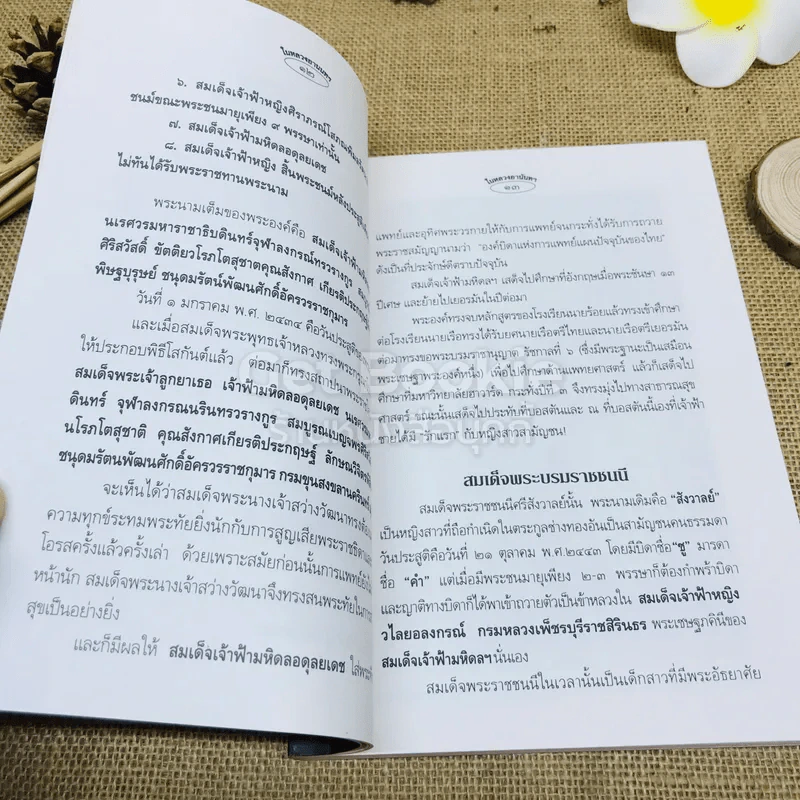 ในหลวงอานันทฯ
๑๒
๖. สมเด็จเจ้าฟ้าหญิงศิราภรณ์โสภณ
ชนม์ขณะพระชนมายุเพียง ๙ พรรษาเท่านั้น
๗. สมเด็จเจ้าฟ้ามหิดลอดุลยเดช
๘. สมเด็จเจ้าฟ้าหญิง สิ้นพระชนม์หลังประสูติ
ไม่ทันได้รับพระราชทานพระนาม
พระนามเต็มของพระองค์คือ สมเด็จเจ้าฟ้า
นเรศวรมหาราชาธิบดินทร์จุฬาลงกรณ์ทรวรางกูร
ศิริสวัสดิ์ ขัตติยวโรภโตสุชาตคุณสังกาศ เกียรติประกฤษฐ
พิษฐบุรุษย์ ชนุดมรัตน์พัฒนศักดิ์อัครวรราชกุมาร
วันที่ ๑ มกราคม พ.ศ. ๒๔๓๔ คือวันประสูติ
และเมื่อสมเด็จพระพุทธเจ้าหลวงทรงพระกรุณา
ให้ประกอบพิธีโสกันต์แล้ว ต่อมาก็ทรงสถาปนาพระ
สมเด็จพระเจ้าลูกยาเธอ เจ้าฟ้ามหิดลอดุลยเดช นเรศวร
ดินทร์ จุฬาลงกรณนรินทรวรางกูร สมบูรณเบญจพร
นโรภโตสุชาติ คุณสังกาศเกียรติประกฤษฐ์ ลักษณวิจิตร
ชนุดมรัตนพัฒนศักดิ์อัครวรราชกุมาร กรมขุนสงขลานครินทร์
จะเห็นได้ว่าสมเด็จพระนางเจ้าสว่างวัฒนาทรงต้อง
ความทุกข์ระทมพระทัยยิ่งนักกับการสูญเสียพระราชธิดาและ
โอรสครั้งแล้วครั้งเล่า ด้วยเพราะสมัยก่อนนั้นการแพทย์ยังไม่
หน้านัก สมเด็จพระนางเจ้าสว่างวัฒนาจึงทรงสนพระทัยในการ
สุขเป็นอย่างยิ่ง
และก็มีผลให้ สมเด็จเจ้าฟ้ามหิดลอดุลยเดช ใส่พระ
ในหลวงอานันทฯ
๑๓
แพทย์และอุทิศพระวรกายให้กับการแพทย์จนกระทั่งได้รับการถวาย
พระราชสมัญญานามว่า "องค์บิดาแห่งการแพทย์แผนปัจจุบันของไทย"
ดังเป็นที่ประจักษ์ดีตราบปัจจุบัน
สมเด็จเจ้าฟ้ามหิดลฯ เสด็จไปศึกษาที่อังกฤษเมื่อพระชันษา ๑๓
ปีเศษ และย้ายไปเยอรมันในปีต่อมา
พระองค์ทรงจบหลักสูตรของโรงเรียนนายร้อยแล้วทรงเข้าศึกษา
ต่อโรงเรียนนายเรือทรงได้รับยศนายเรือตรีไทยและนายเรือตรีเยอรมัน
ต่อมาทรงขอพระบรมราชานุญาต รัชกาลที่ ๖ (ซึ่งมีพระฐานะเป็นเสมือน
พระเชษฐาพระองค์หนึ่ง) เพื่อไปศึกษาด้านแพทยศาสตร์ แล้วก็เสด็จไป
ศึกษาที่มหาวิทยาลัยฮาวาร์ด กระทั่งปีที่ ๓ จึงทรงมุ่งไปทางสาธารณสุข
ศาสตร์ ขณะนั้นเสด็จไปประทับที่บอสตันและ ณ ที่บอสตันนี้เองที่เจ้าฟ้า
ชายได้มี "รักแรก" กับหญิงสาวสามัญชน!
สมเด็จพระบรมราชชนนี
สมเด็จพระราชชนนีศรีสังวาลย์นั้น พระนามเดิมคือ "สังวาลย์"
เป็นหญิงสาวที่ถือกำเนิดในตระกูลช่างทองอันเป็นสามัญชนคนธรรมดา
วันประสูติคือวันที่ ๒๑ ตุลาคม พ.ศ.๒๔๔๓ โดยมีบิดาชื่อ"ชู" มารดา
ชื่อ "คำ" แต่เมื่อมีพระชนมายุเพียง ๒-๓ พรรษาก็ต้องกำพร้าบิดา
และญาติทางบิดาก็ได้พาเข้าถวายตัวเป็นข้าหลวงใน สมเด็จเจ้าฟ้าหญิง
วไลยอลงกรณ์ กรมหลวงเพ็ชรบุรีราชสิรินธร พระเชษฐภคินีของ
สมเด็จเจ้าฟ้ามหิดลฯนั่นเอง
สมเด็จพระราชชนนีในเวลานั้นเป็นเด็กสาวที่มีพระอัธยาศัย